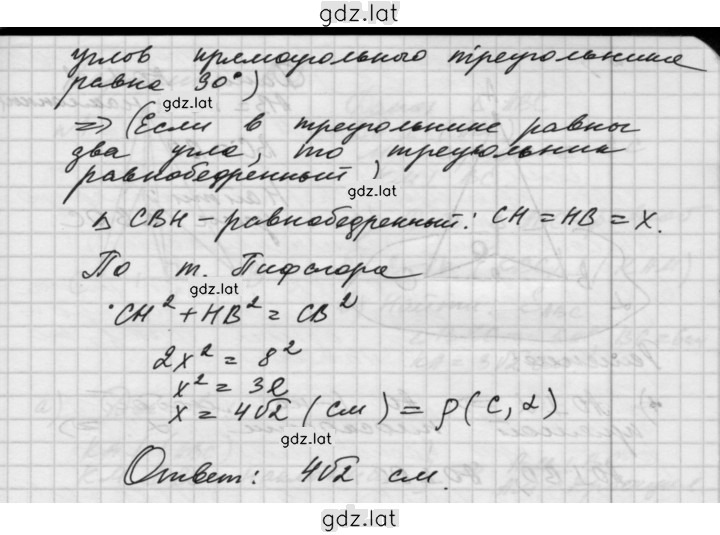 gdz.lat
углов прямоугольного треугольника
равна 30°)
gdz.lat
=> (Если в треугольнике равны
два угла, то треугольник
равнобедренный)
gdz.lat
Δ CBH - равнобедренный: CH = HB = x.
По т. Пифагора
gdz.lat
CH² + HB² = CB²
2x² = 8²
x² = 32
x = 4√2 (см) = ρ(C, α)
gdz.lat
Ответ: 4√2 см.
gdz.lat